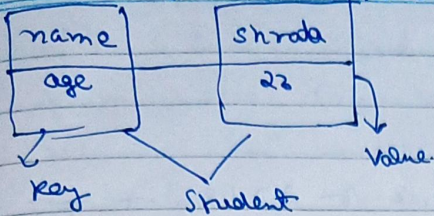 name shrada
age 23
key student value